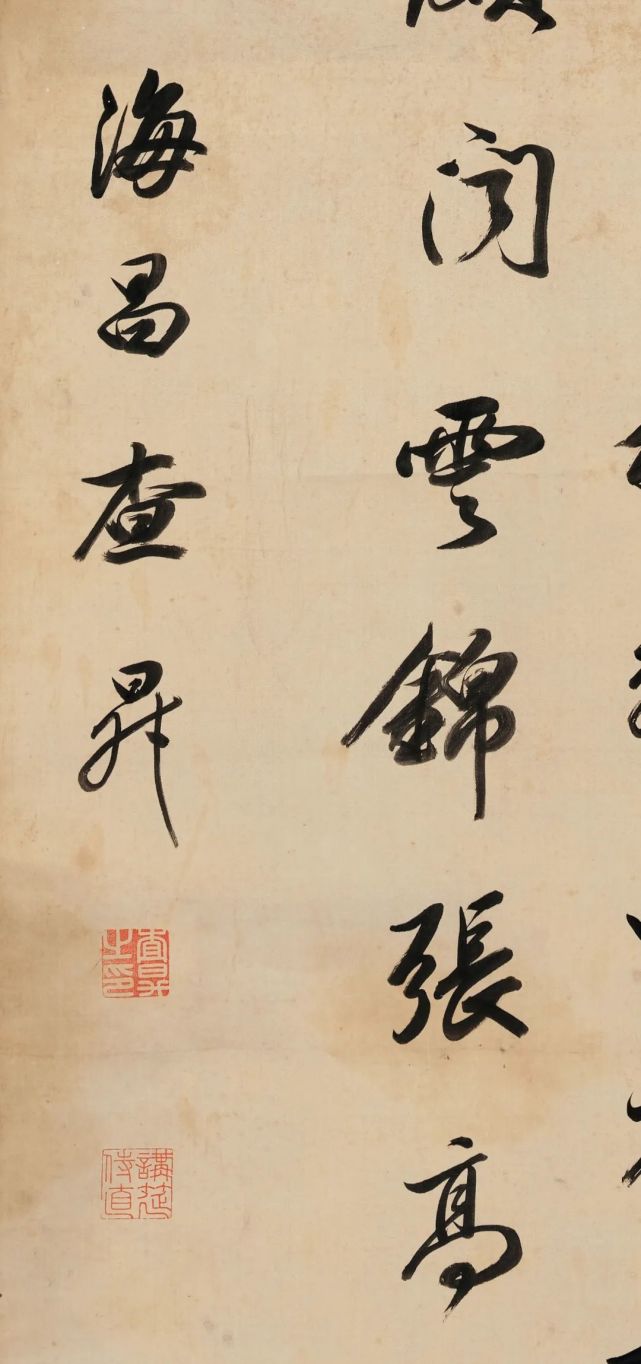 閃雲錦張高
海昌查昇
查昇之印
講筵侍直